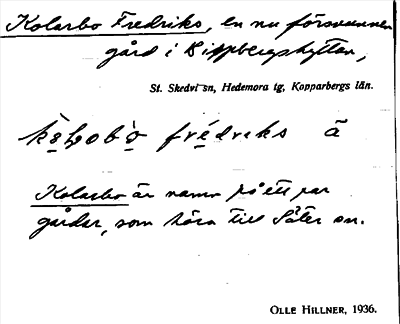 Kolarbo Fredriks, en nu försvunnen
gård i Bispbergshyttan,
St. Skedvi sn, Hedemora tg, Kopparbergs län.
fredriks ä
Kolarbo är namn på ett par
gårdar, som höra till Säter sn.
OLLE HILLNER, 1936.